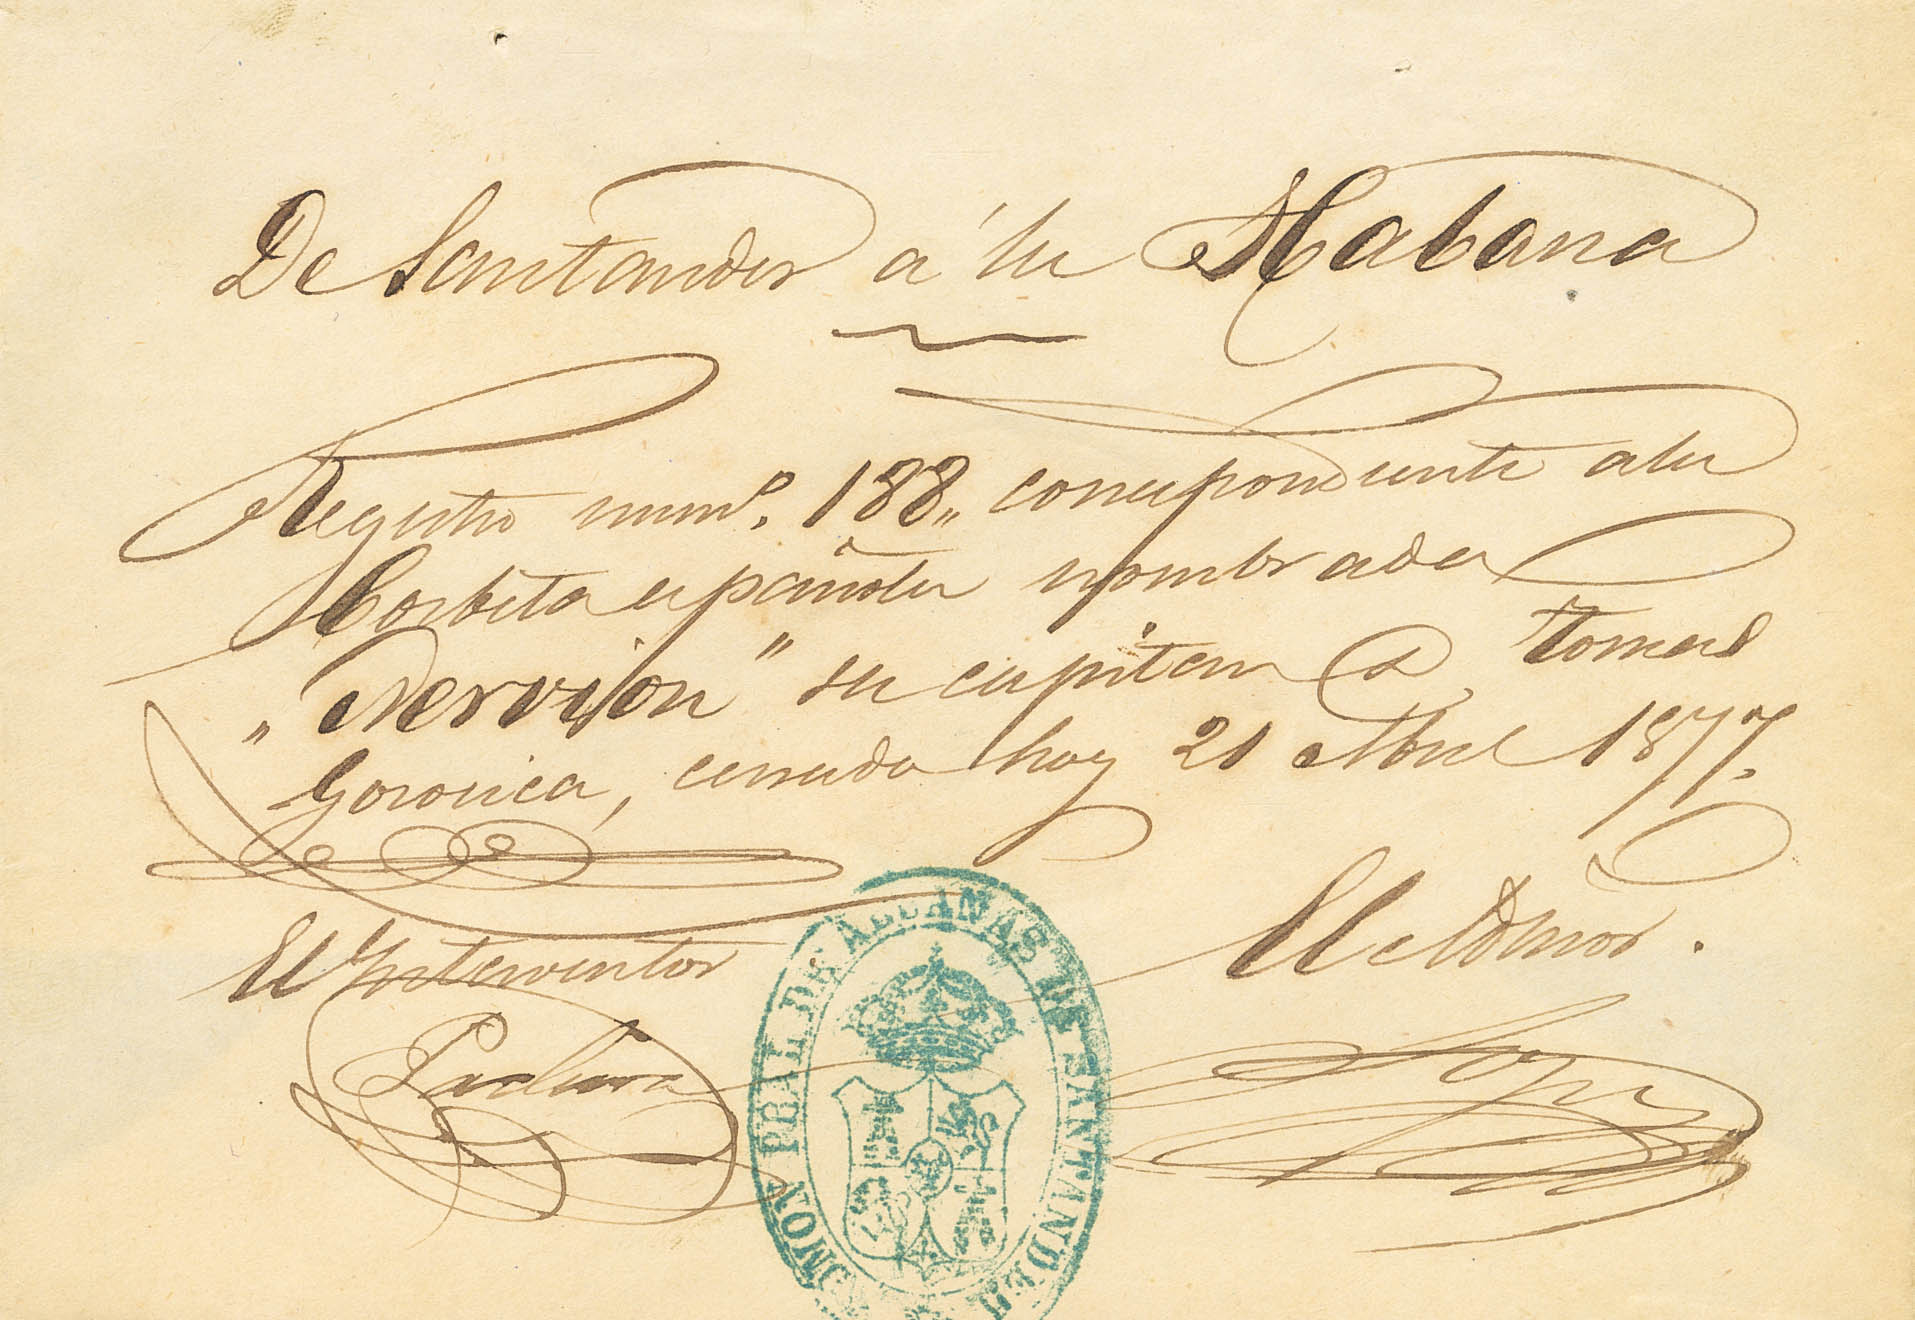 De Santander á la Habana
Registro num.º 188,, correspondiente a la
Corbeta española nombrada
„Nervion" su capitan D. Tomas
Goronica, cerrado hoy 21 Abril 1877.
El Interventor
El Admor.
Lopez
ADMON PRAL DE ADUANAS DE SANTANDER